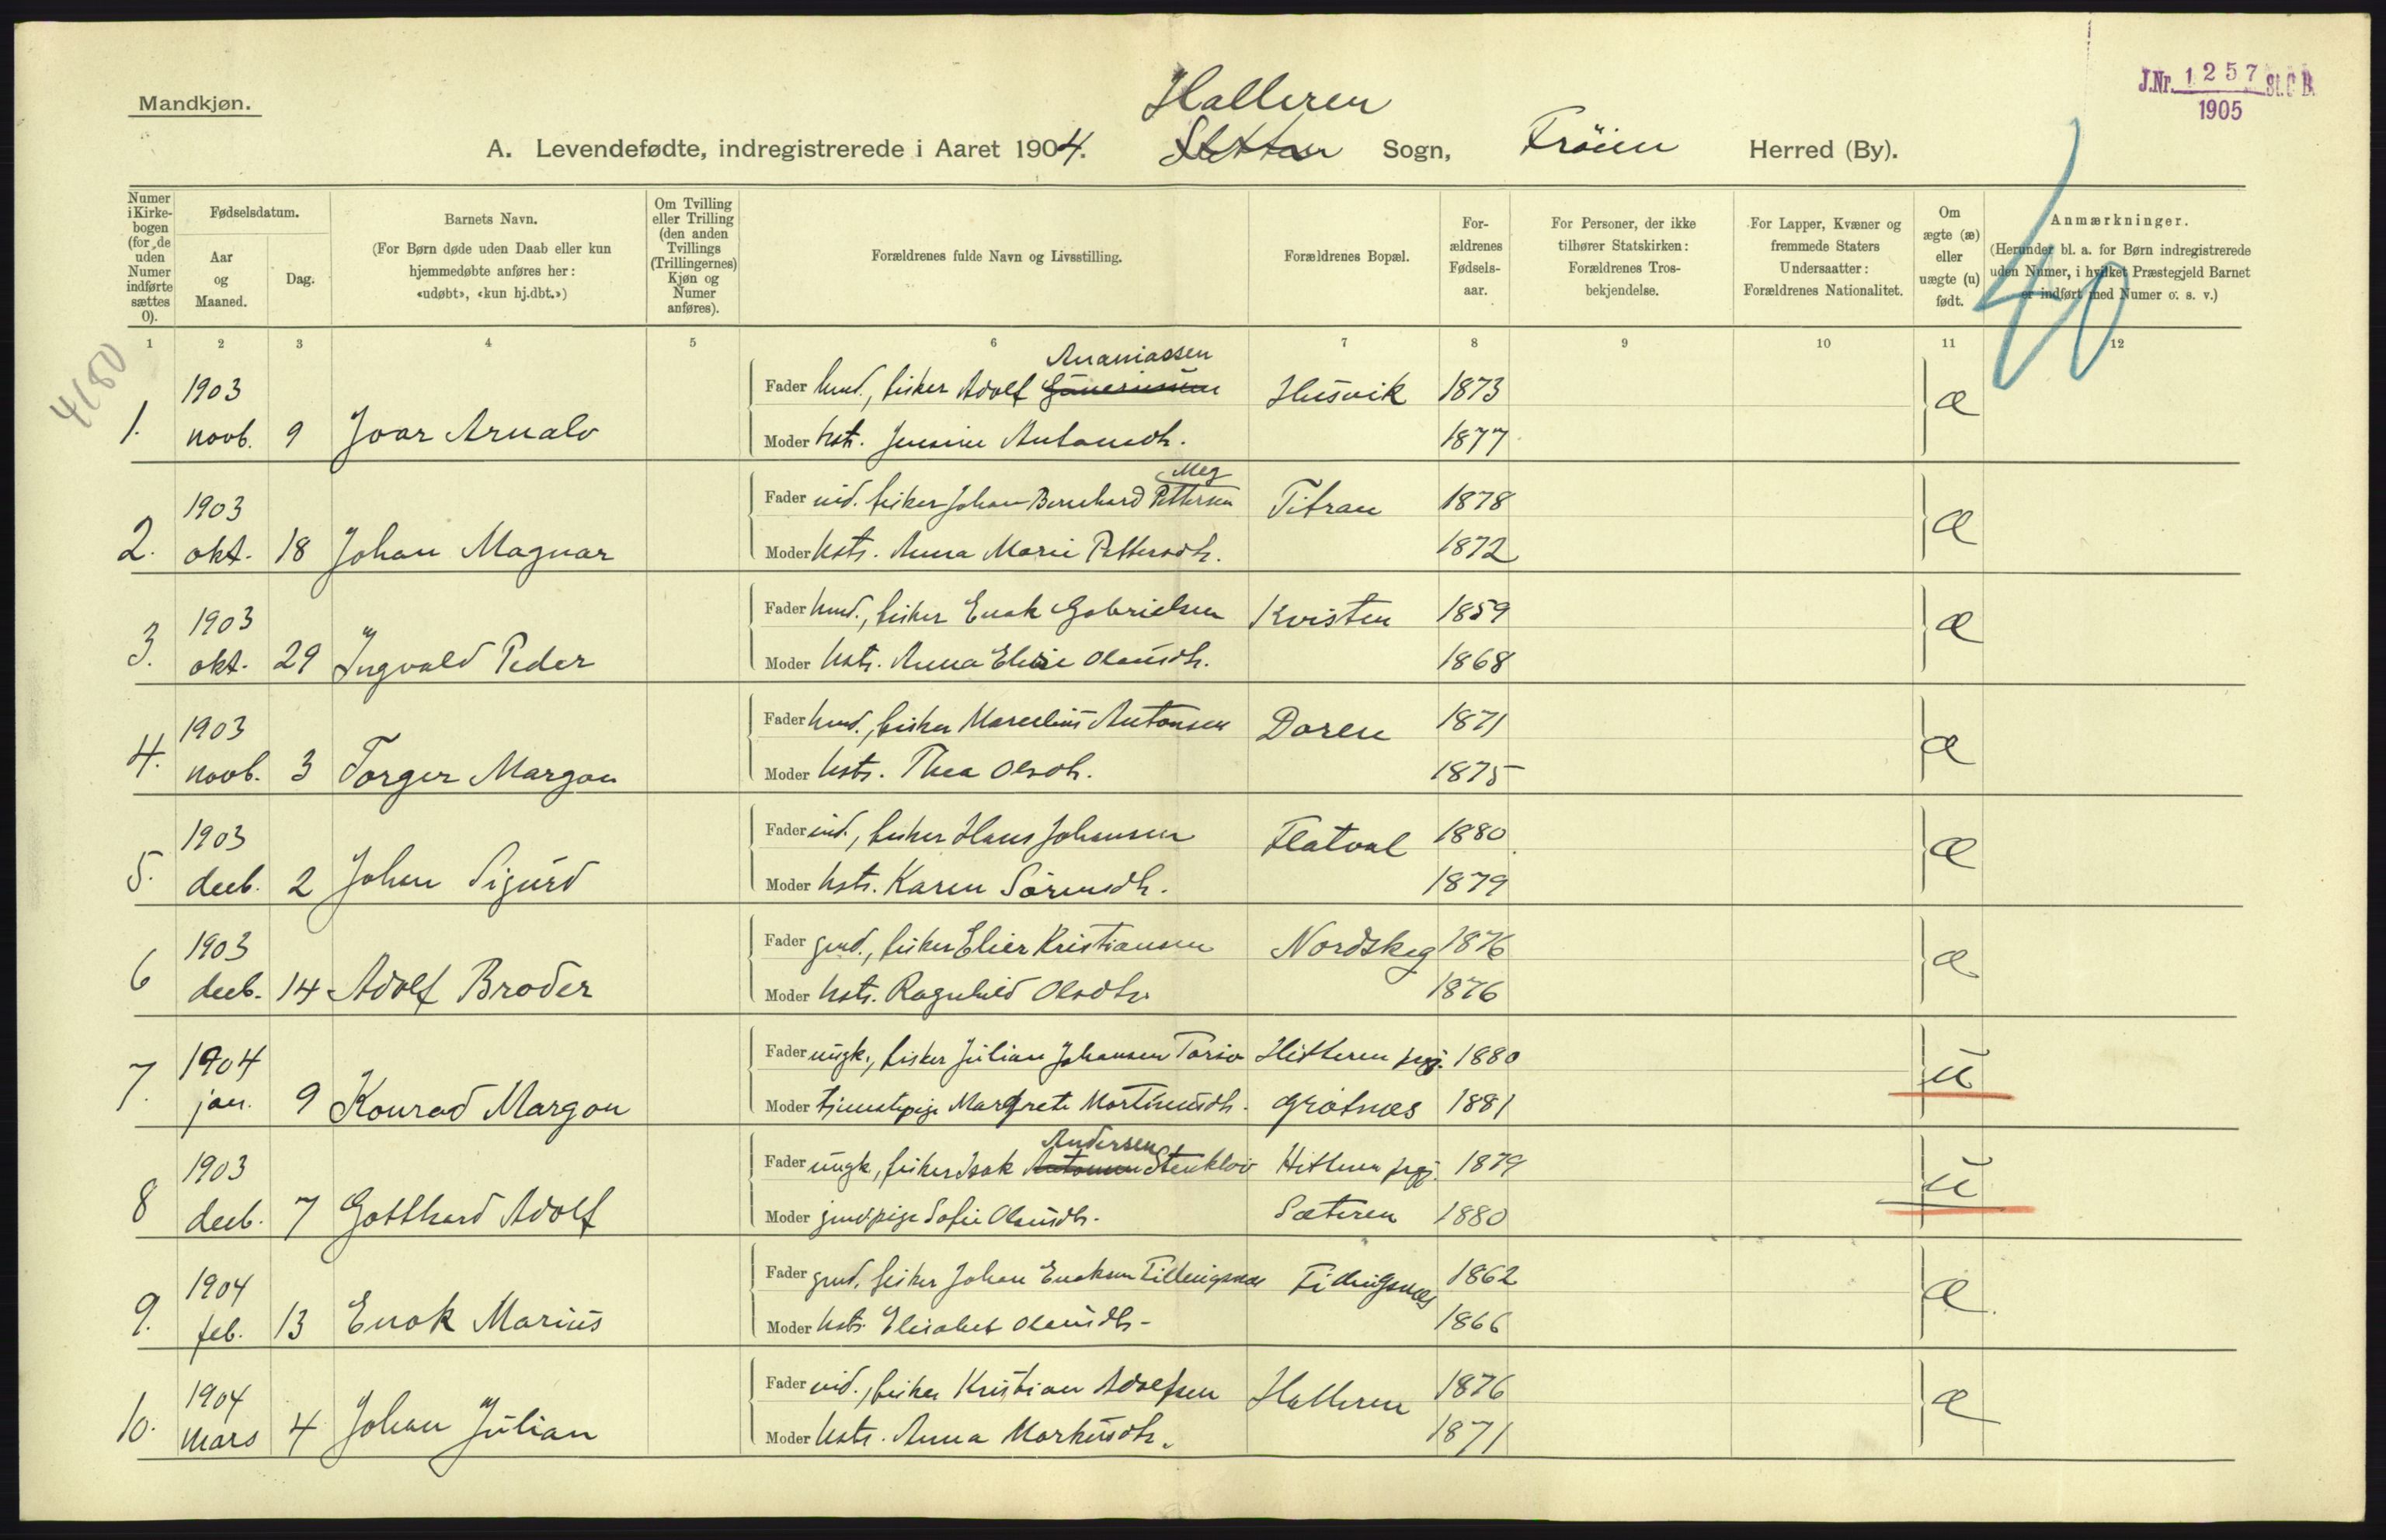 Mandkjøn.
J.Nr. 1257 St.C.B.
1905
Halleren
A. Levendefødte, indregistrerede i Aaret 1904. Sletten Sogn, Fröien Herred (By).
40
Numer i Kirkebogen (for de uden Numer indførte sættes 0).
Fødselsdatum.
Aar og Maaned.
Dag.
Barnets Navn.
(For Børn døde uden Daab eller kun hjemmedøbte anføres her: «udøbt», «kun hj.dbt.»)
Om Tvilling eller Trilling (den anden Tvillings (Trillingernes) Kjøn og Numer anføres).
Forældrenes fulde Navn og Livsstilling.
Forældrenes Bopæl.
Forældrenes Fødselsaar.
For Personer, der ikke tilhører Statskirken: Forældrenes Trosbekjendelse.
For Lapper, Kvæner og fremmede Staters Undersaatter: Forældrenes Nationalitet.
Om ægte (æ) eller uægte (u) født.
Anmærkninger.
(Herunder bl. a. for Børn indregistrerede uden Numer, i hvilket Præstegjeld Barnet er indført med Numer o. s. v.)
1 2 3 4 5 6 7 8 9 10 11 12
4180
1. 1903 novb. 9 Joar Arnalv
Fader hmd., fisker Adolf Ananiassen Husvik 1873 æ
Moder hstr. Jensine Antonsdtr. 1877
2. 1903 okt. 18 Johan Magnar
Fader ind. fisker Johan Bernhard Pettersen Meg Titran 1878 æ
Moder hstr. Anna Marie Pettersdtr. 1872
3. 1903 okt. 29 Ingvald Peder
Fader hmd., fisker Enok Gabrielsen Kvisten 1859 æ
Moder hstr. Anna Elisie Olausdtr. 1868
4. 1903 novb. 3 Torger Margon
Fader hmd., fisker Marselius Antonsen Daren 1871 æ
Moder hstr. Thea Olsdtr. 1875
5. 1903 decb. 2 Johan Sigurd
Fader ind., fisker Hans Johansen Flatval 1880 æ
Moder hstr. Karen Sörensdtr. 1879
6 1903 decb. 14 Adolf Broder
Fader gmd., fisker Elier Kristiansen Nordskag 1876 æ
Moder hstr. Ragnhild Olsdtr. 1876
7. 1904 jan. 9 Konrad Margon
Fader ungk., fisker Julian Johansen Hitteren prgj. 1880 u
Moder tjenestepige Margrete Martinusdtr. Grøtnæs 1881
8 1903 decb. 7 Gotthard Adolf
Fader ungk., fisker Isak Antonsen Andersen Stenklöv Hitteren prgj. 1879 u
Moder gmdpige Sofie Olausdtr. Sæteren 1880
9. 1904 feb. 13 Enok Marius
Fader gmd. fisker Johan Enoksen Fillingsnæs Fillingsnæs 1862 æ
Moder hstr. Elisabet Olausdtr. 1866
10. 1904 mars 4 Johan Julian
Fader ind., fisker Kristian Adolfsen Halleren 1876 æ
Moder hstr. Anna Markusdtr. 1871